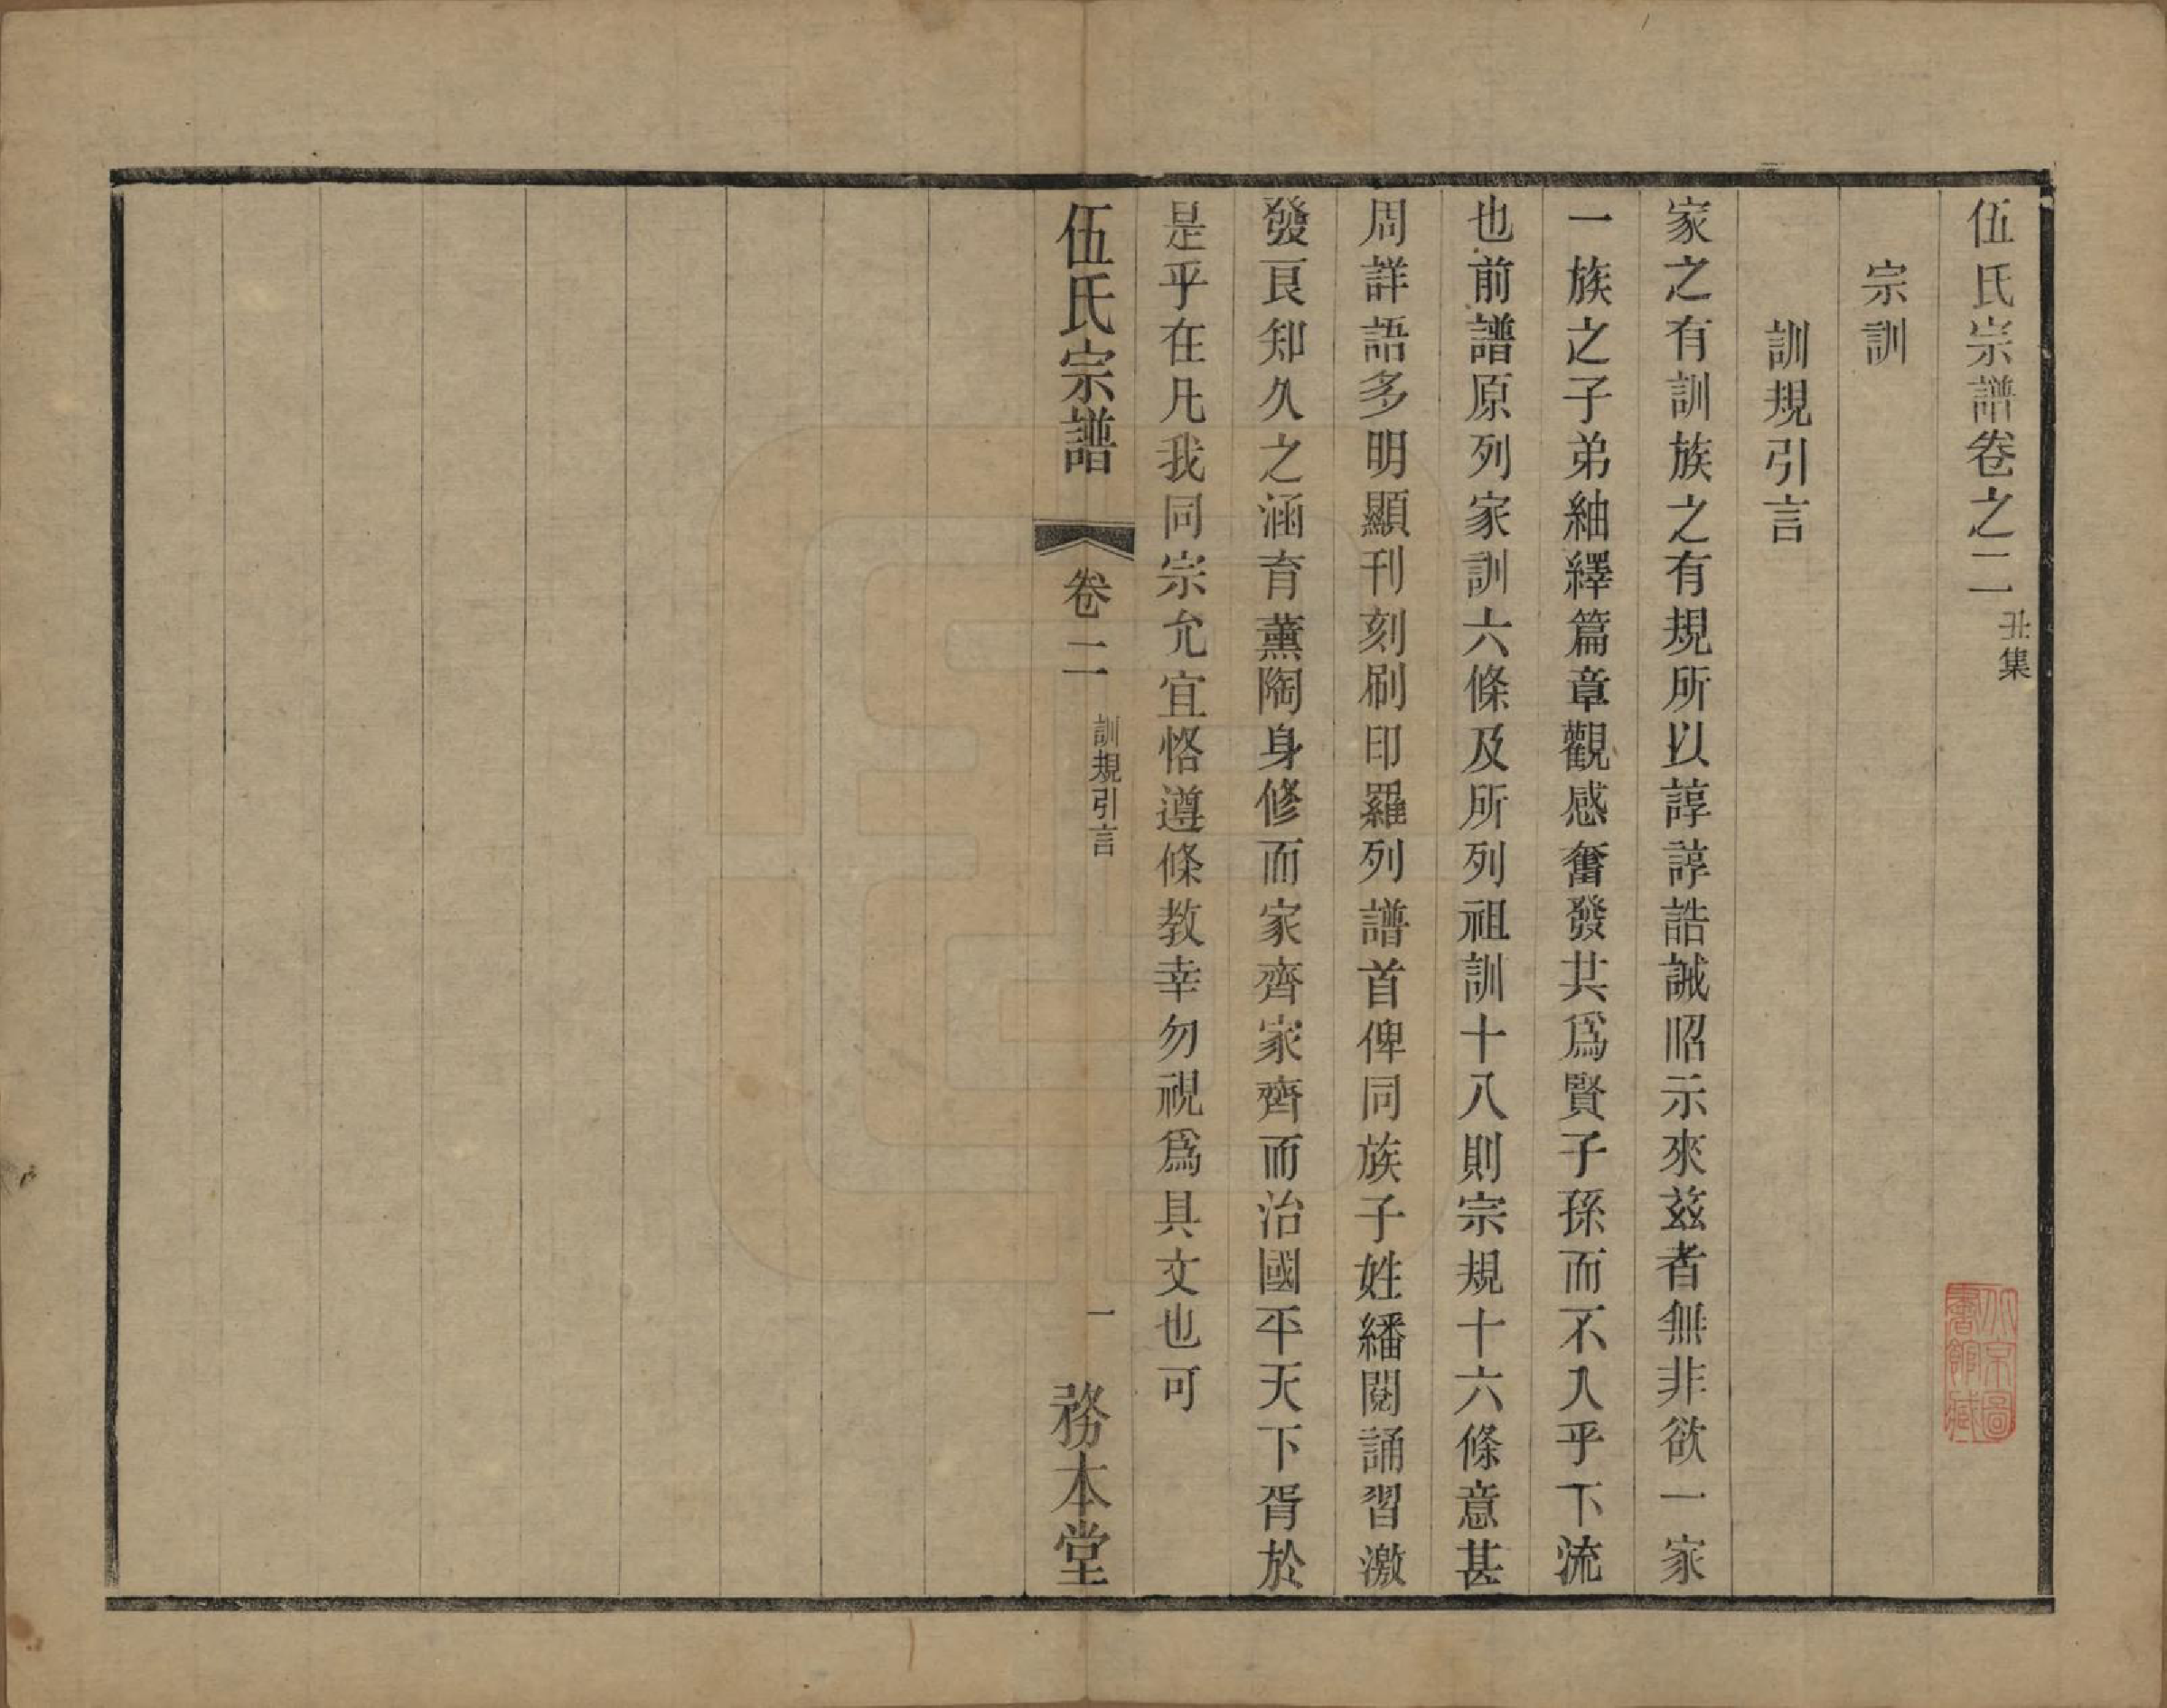 伍氏宗譜卷之二 丑集
宗訓
訓規引言
家之有訓族之有規所以諄諄誥誡昭示來茲者無非欲一家
一族之子弟紬繹篇章觀感奮發共爲賢子孫而不入乎下流
也前譜原列家訓六條及所列祖訓十八則宗規十六條意甚
周詳語多明顯刊刻刷印羅列譜首俾同族子姓繙閱誦習激
發良知久之涵育薰陶身修而家齊家齊而治國平天下胥於
是乎在凡我同宗允宜恪遵條教幸勿視爲具文也可
伍氏宗譜 卷二 訓規引言 一 務本堂
北京圖
書館藏